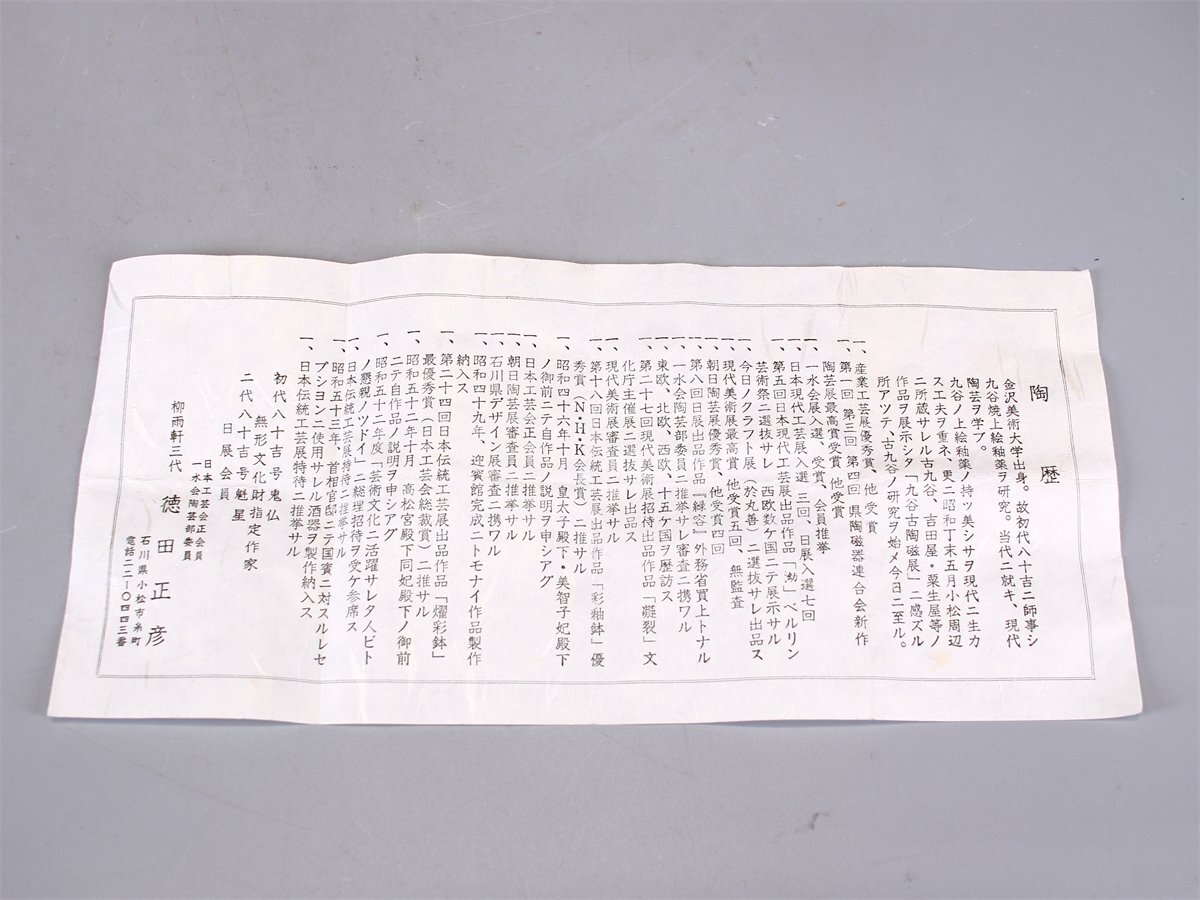 陶歴
金沢美術大学出身。故初代八十吉ニ師事シ
九谷焼上絵釉薬ヲ研究。当代ニ就キ、現代
陶芸ヲ学ブ。
九谷ノ上絵釉薬ノ持ツ美シサヲ現代ニ生カ
ス工夫ヲ重ネ、更ニ昭和丁末五月小松周辺
ニ所蔵サレル古九谷、吉田屋・粟生屋等ノ
作品ヲ展示シタ「九谷古陶磁展」ニ感ズル
所アツテ、古九谷ノ研究ヲ始メ今日ニ至ル。
一、産業工芸展優秀賞、他受賞
一、第一回 第三回 第四回県陶磁器連合会新作
陶芸展最高賞受賞、他受賞
一、一水会展入選、受賞、会員推挙
一、日本現代工芸展入選 三回、日展入選七回
一、第五回日本現代工芸展出品作品「渤」ベルリン
芸術祭ニ選抜サレ 西欧数ケ国ニテ展示サル
一、今日ノクラフト展（於丸善）ニ選抜サレ出品ス
一、現代美術展最高賞、他受賞五回、無監査
一、朝日陶芸展優秀賞、他受賞四回
一、第八回日展出品作品『緑容』外務省買上トナル
一、一水会陶芸部委員ニ推挙サレ審査ニ携ワル
一、東欧、北欧、西欧、十五ケ国ヲ歴訪ス
一、第二十七回現代美術展招待出品作品「凝裂」文
化庁主催展ニ選抜サレ出品ス
一、現代美術展審査員ニ推挙サル
一、第十八回日本伝統工芸展出品作品「彩釉鉢」優
秀賞（N・H・K会長賞）ニ推サル
一、昭和四十六年十月 皇太子殿下・美智子妃殿下
ノ御前ニテ自作品ノ説明ヲ申シアグ
一、日本工芸会正会員ニ推挙サル
一、朝日陶芸展審査員ニ推挙サル
一、石川県デザイン展審査ニ携ワル
一、昭和四十九年、迎賓館完成ニトモナイ作品製作
納入ス
一、第二十四回日本伝統工芸展出品作品「燿彩鉢」
最優秀賞（日本工芸会総裁賞）ニ推サル
一、昭和五十二年十月 高松宮殿下同妃殿下ノ御前
ニテ自作品ノ説明ヲ申シアグ
一、昭和五十二年度「芸術文化ニ活躍サレタ人ビト
ノ懇親ノツドイ」ニ総理招待ヲ受ケ参席ス
一、日本伝統工芸展特待ニ推挙サル
一、昭和五十三年、首相官邸ニテ国賓ニ対スルレセ
プシヨンニ使用サレル酒器ヲ製作納入ス
一、日本伝統工芸展特待ニ推挙サル
初代八十吉号鬼仏
無形文化財指定作家
二代八十吉号魁星
日展会員
日本工芸会正会員
一水会陶芸部委員
柳雨軒三代 徳田正彦
石川県小松市糸町
電話二二-〇四四三番